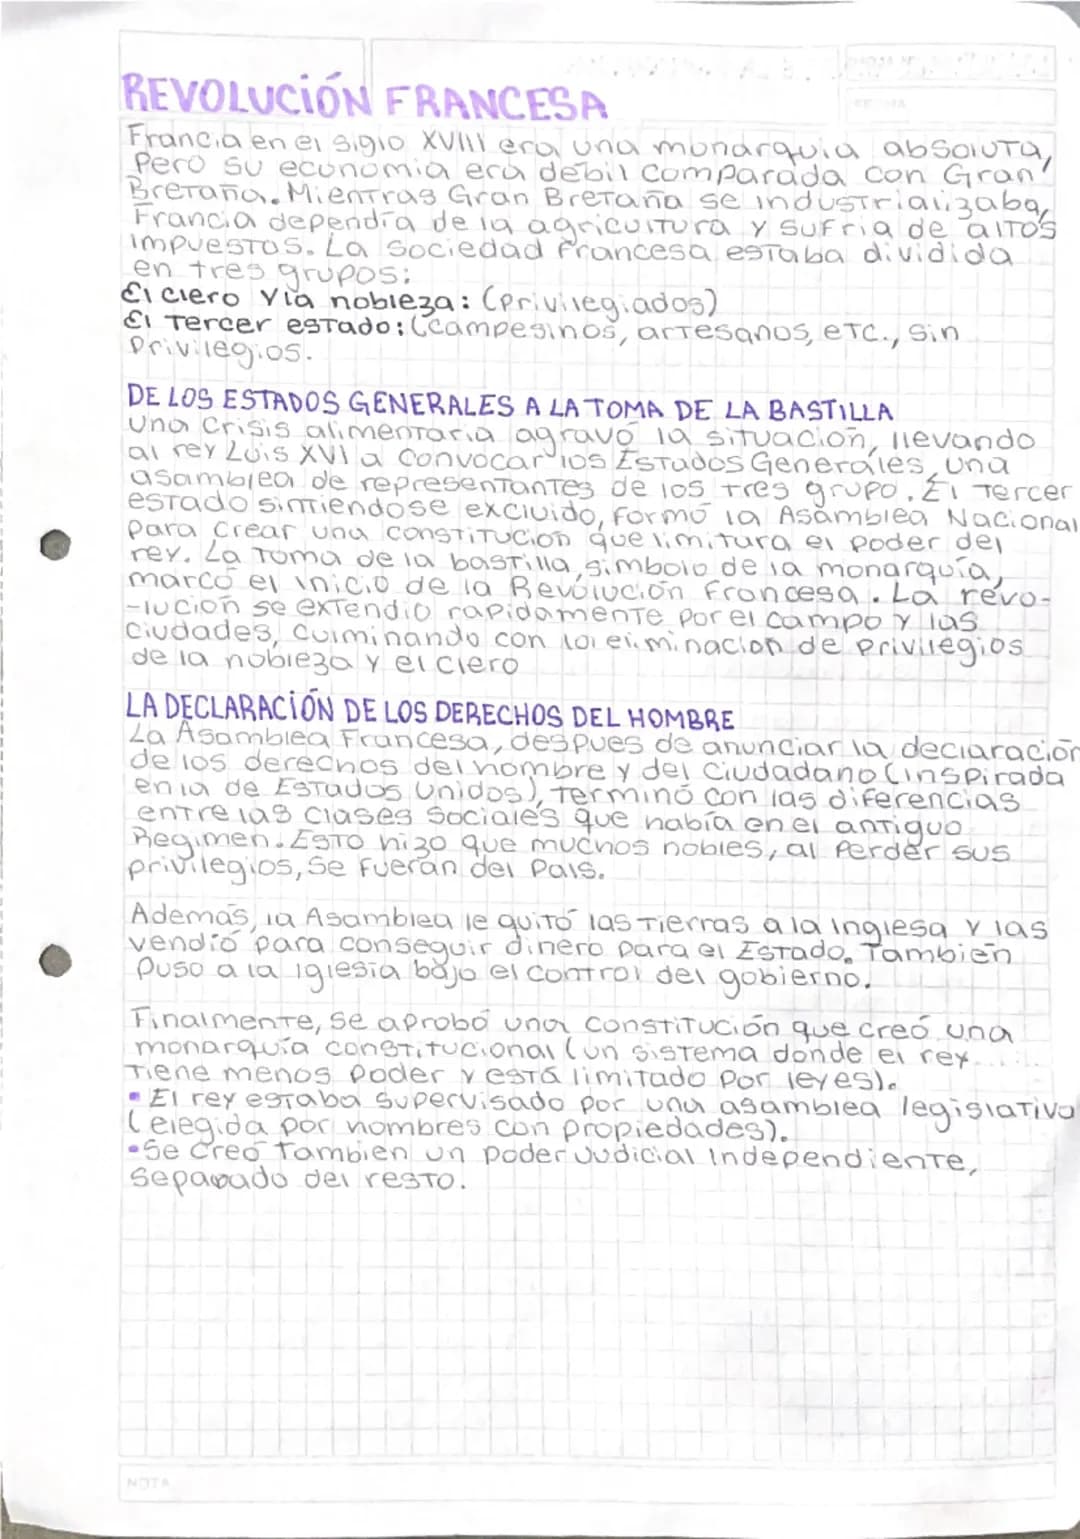 REVOLUCIÓN FRANCESA
Francia en el siglo XVIII era una monarquia absoluta,
Pero su economia era débil comparada con Gran
Bretaña. Mientras Gran Bretaña se industrializaba,
Francia dependía de la agricultura y sufria de altos
impuestos. La sociedad Francesa estaba dividida
en tres grupos:
El clero y la nobleza: (privilegiados)
El Tercer estado: (campesinos, artesanos, etc., sin
privilegios.
DE LOS ESTADOS GENERALES A LA TOMA DE LA BASTILLA
Una crisis alimentaria agravó la situación, llevando
al rey Luis XVI a convocar los Estados Generales, una
asamblea de representantes de los tres grupo. El Tercer
estado sintiendose excluido, formó la Asamblea Nacional
para crear una constitución que limitura el poder del
rey. La toma de la bastilla, simbolo de la monarquía,
marcó el inicio de la Revolución Francesa. La revo-
-lución se extendio rapidamente por el campo y las
ciudades, culminando con la eliminación de privilegios
de la nobleza y el clero
LA DECLARACIÓN DE LOS DERECHOS DEL HOMBRE
La Asamblea Francesa, despues de anunciar la declaración
de los derechos del hombre y del ciudadano (inspirada
en la de Estados Unidos), terminó con las diferencias
entre las clases sociales que había en el antiguo
Regimen. Esto hizo que muchos nobles, al perder sus
privilegios, se fueran del País.
Además, la Asamblea le quitó las tierras a la inglesa y las
vendió para conseguir dinero para el Estado. También
puso a la iglesia bajo el control del gobierno.
Finalmente, se aprobó una constitución que creó una
monarquía constitucional (un sistema donde el rey
tiene menos poder y está limitado por leyes).
• El rey estaba supervisado por una asamblea legislativa
(elegida por hombres con propiedades).
• Se creó también un poder Judicial independiente,
separado del resto.
NOTA